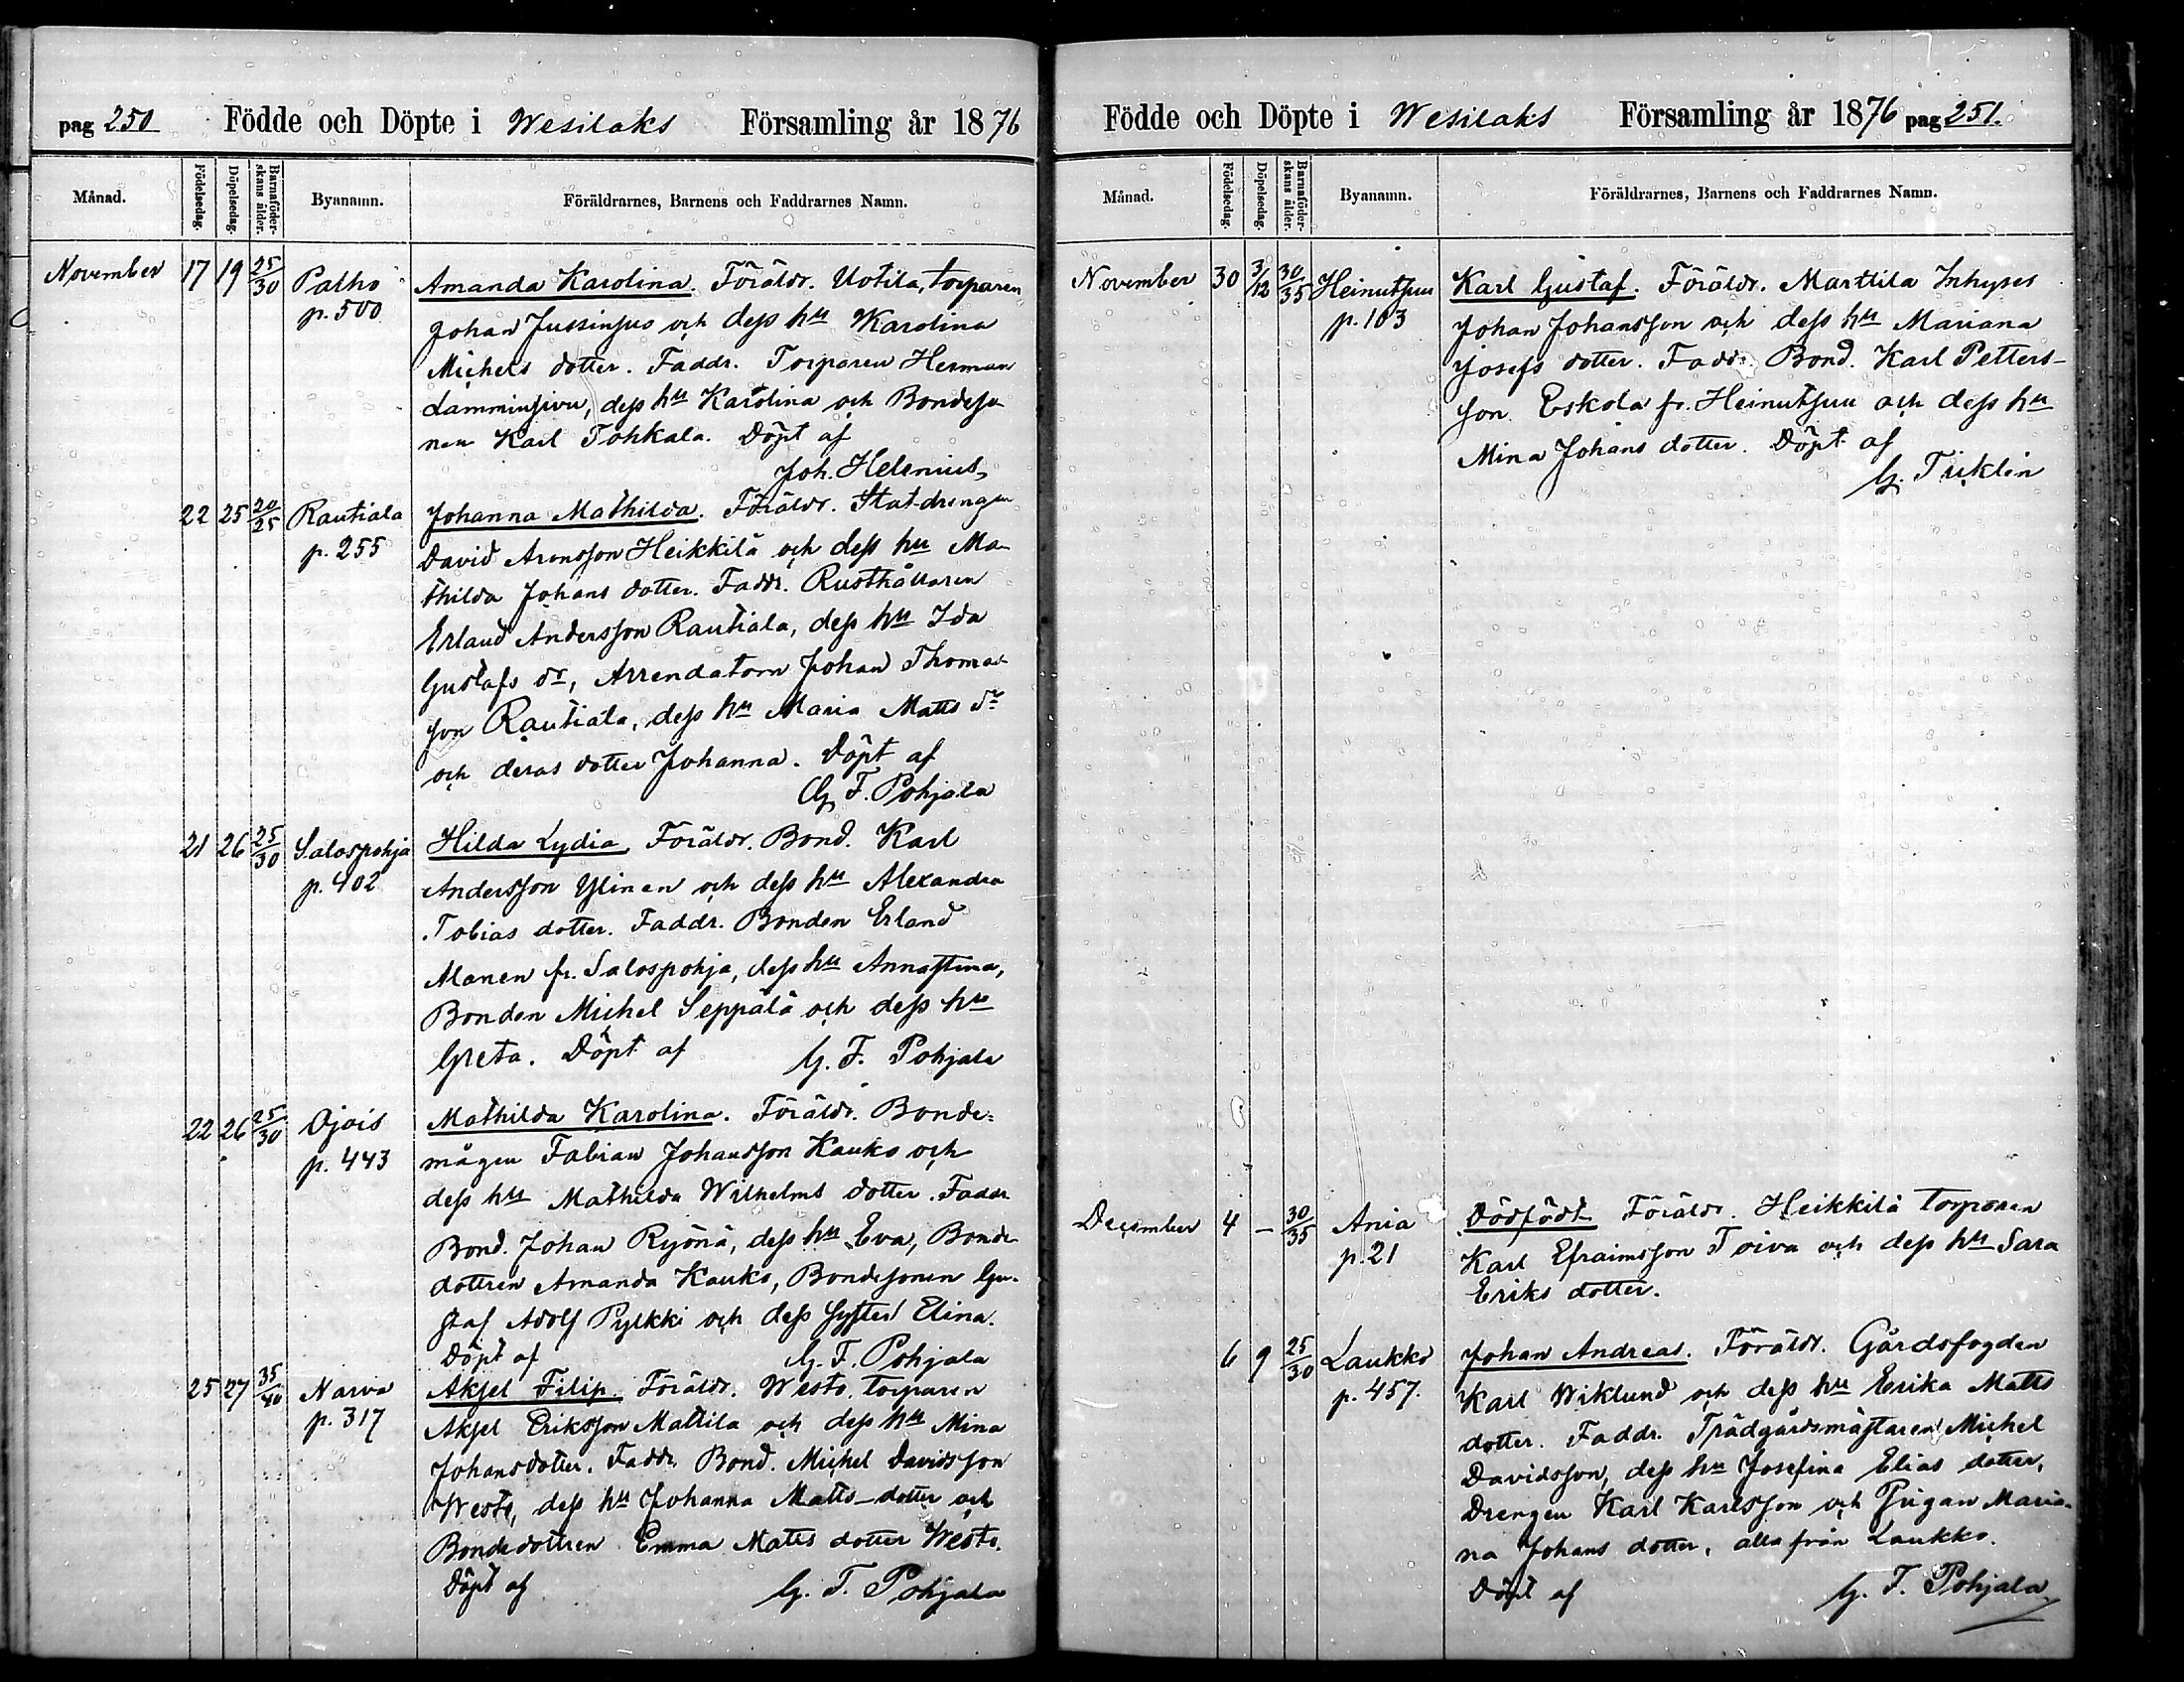 pag 250 Födde och Döpte i Wesilaks Församling år 1876
Månad. Födelsedag. Döpelsedag. Barnaföder-skans ålder. Byanamn. Föräldrarnes, Barnens och Faddrarnes Namn.
November 17 19 25/30 Palho Amanda Karolina. Föräldr. Uotila, torparen
p. 500 Johan Jussinsuo och dess hu Karolina
Michels dotter. Faddr. Torparen Herman
Lamminsivu, dess hu Karolina och Bondeso-
nen Karl Tohkala. Döpt af
Joh. Helenius
22 25 20/25 Rautiala Johanna Mathilda. Föräldr. Statdrengen
p. 255 David Aronsson Heikkilä och dess hu Ma-
thilda Johans dotter. Faddr. Rusthållaren
Erland Andersson Rautiala, dess hu Ida
Gustafs dr, Arrendatorn Johan Thomas-
son Rautiala, dess hu Maria Matts dr
och deras dotter Johanna. Döpt af
G. F. Pohjala
21 26 25/30 Salospohja Hilda Lydia. Föräldr. Bond. Karl
p. 402 Andersson Ylinen och dess hu Alexandra
Tobias dotter. Faddr. Bonden Erland
Alanen fr. Salospohja, dess hu Annastina,
Bonden Michel Seppälä och dess hu
Greta. Döpt af G. F. Pohjala
22 26 25/30 Ojois Mathilda Karolina. Föräldr. Bonde-
p. 443 mågen Fabian Johansson Kauko och
dess hu Mathilda Wilhelms dotter. Faddr
Bond. Johan Ryönä, dess hu Eva, Bonde-
dottren Amanda Kauko, Bondesonen Gu-
staf Adolf Pylkki och dess syster Elina.
Döpt af G. F. Pohjala
25 27 35/40 Narva Aksel Filip. Föräldr. Westo, torparen
p. 317 Aksel Eriksson Mattila och dess hu Mina
Johansdotter. Faddr. Bond. Michel Davidsson
Westo, dess hu Johanna Matts-dotter och
Bondedottren Emma Matts dotter Westo.
Döpt af G. F. Pohjala
Födde och Döpte i Wesilaks Församling år 1876 pag 251.
Månad. Födelsedag. Döpelsedag. Barnaföder-skans ålder. Byanamn. Föräldrarnes, Barnens och Faddrarnes Namn.
November 30 3/12 30/35 Heinutsuu Karl Gustaf. Föräldr. Marttila Inhyses
p. 103 Johan Johansson och dess hu Mariana
Josefs dotter. Faddr. Bond. Karl Petters-
son Eskola fr. Heinutsuu och dess hu
Mina Johans dotter. Döpt af
G.
December 4 - 30/35 Ania Dödfödt Föräldr. Heikkilä torparen
p. 21 Karl Efraimsson Toiva och dess hu Sara
Eriks dotter.
6 9 25/30 Laukko Johan Andreas. Föräldr. Gårdsfogden
p. 457. Karl Wiklund och dess hu Erika Matts
dotter. Faddr. Trädgårdsmästaren Michel
Davidsson, dess hu Josefina Elias dotter,
Drengen Karl Karlsson och Pigan Maria-
na Johans dotter, alla från Laukko.
Döpt af G. F. Pohjala